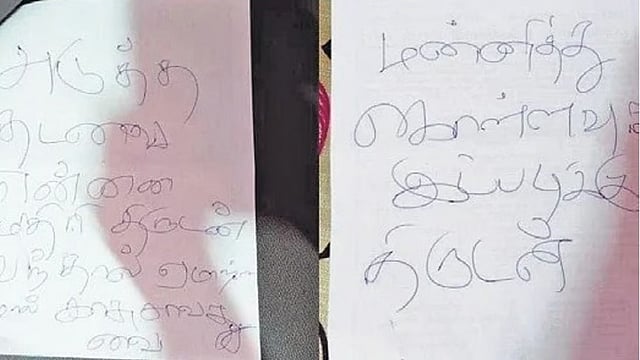 அடுத்த
தடவை
என்னை
மாதிரி திருடன்
வந்தால் ஏமாற்
மல் காசாவது
வை
மன்னித்து
கொள்ளவும்
இப்படிக்கு
திருடன்